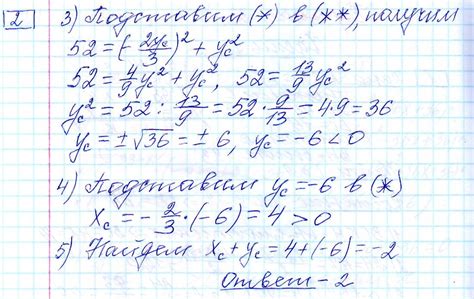 2 3) Подставим (*) в (**), получим
52 = (-2yc/3)² + yc²
52 = 4/9 yc² + yc², 52 = 13/9 yc²
yc² = 52 : 13/9 = 52 · 9/13 = 4·9 = 36
yc = ±√36 = ±6, yc = -6 < 0
4) Подставим yc = -6 в (*)
xc = -2/3 · (-6) = 4 > 0
5) Найдем xc + yc = 4 + (-6) = -2
Ответ -2